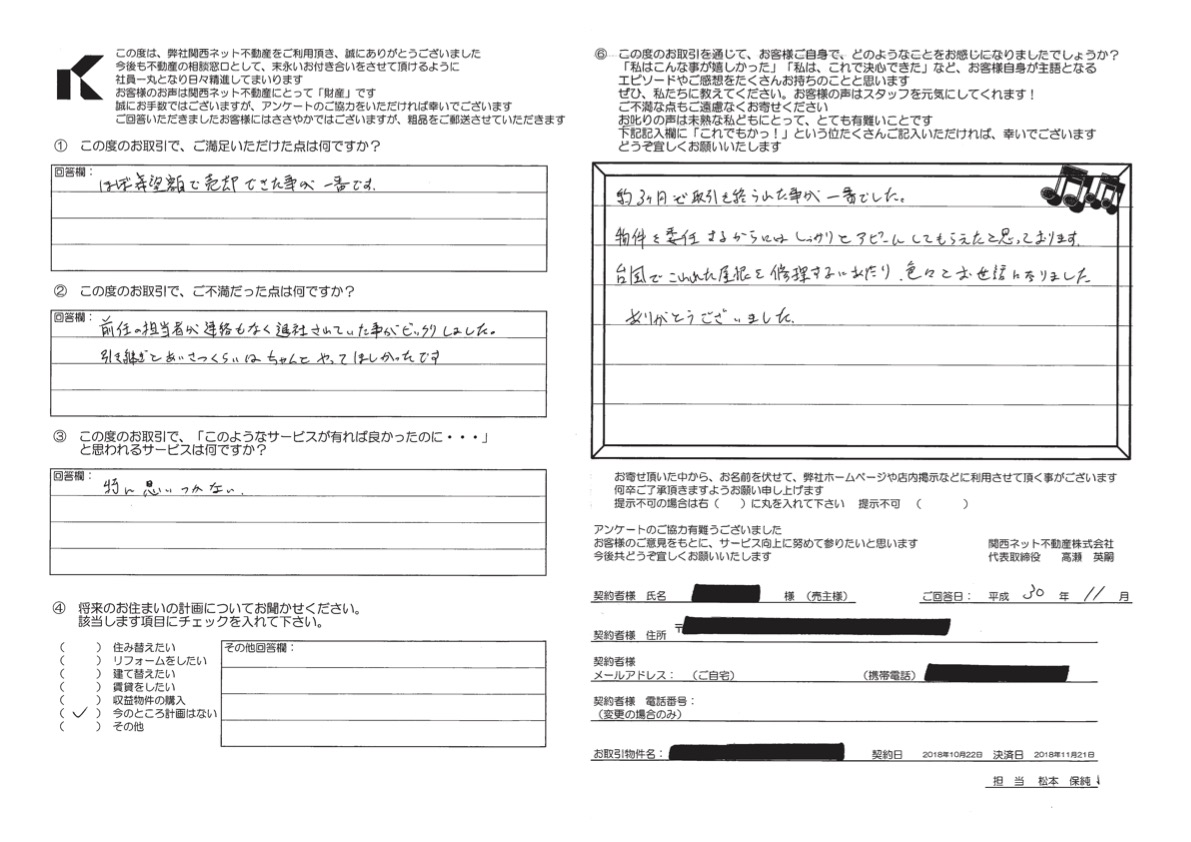 この度は、弊社関西ネット不動産をご利用頂き、誠にありがとうございました
今後も不動産の相談窓口として、末永いお付き合いをさせて頂けるように
社員一丸となり日々精進してまいります
お客様のお声は関西ネット不動産にとって「財産」です
誠にお手数ではございますが、アンケートのご協力をいただければ幸いでございます
ご回答いただきましたお客様にはささやかではございますが、粗品をご郵送させていただきます
① この度のお取引で、ご満足いただけた点は何ですか？
回答欄：
ほぼ希望額で売却できた事が一番です。
② この度のお取引で、ご不満だった点は何ですか？
回答欄：
前任の担当者が連絡もなく退社されていた事がビックリしました。
引き継ぎとあいさつくらいはちゃんとやってほしかったです
③ この度のお取引で、「このようなサービスが有れば良かったのに・・・」
と思われるサービスは何ですか？
回答欄：
特に思いつかない。
④ 将来のお住まいの計画についてお聞かせください。
該当します項目にチェックを入れて下さい。
（　　）住み替えたい
（　　）リフォームをしたい
（　　）建て替えたい
（　　）賃貸をしたい
（　　）収益物件の購入
（ ✓ ）今のところ計画はない
（　　）その他
その他回答欄：
⑥ この度のお取引を通じて、お客様ご自身で、どのようなことをお感じになりましたでしょうか？
「私はこんな事が嬉しかった」「私は、これで決心できた」など、お客様自身が主語となる
エピソードやご感想をたくさんお持ちのことと思います
ぜひ、私たちに教えてください。お客様の声はスタッフを元気にしてくれます！
ご不満な点もご遠慮なくお寄せください
お叱りの声は未熟な私どもにとって、とても有難いことです
下記記入欄に「これでもかっ！」という位たくさんご記入いただければ、幸いでございます
どうぞ宜しくお願いいたします
約3ヶ月で取引を終えられた事が一番でした。
物件を委任するからにはしっかりとアピールしてもらえたと思っております。
台風でこわれた屋根を修理するにあたり、色々とお世話になりました
ありがとうございました。
お寄せ頂いた中から、お名前を伏せて、弊社ホームページや店内掲示などに利用させて頂く事がございます
何卒ご了承頂きますようお願い申し上げます
提示不可の場合は右（　　）に丸を入れて下さい　提示不可　（　　　）
アンケートのご協力有難うございました
お客様のご意見をもとに、サービス向上に努めて参りたいと思います
今後共どうぞ宜しくお願いいたします
関西ネット不動産株式会社
代表取締役　高瀬　英嗣
契約者様 氏名　様（売主様）　ご回答日：　平成 30 年 11 月
〒
契約者様 住所
契約者様
メールアドレス：　（ご自宅）　（携帯電話）
契約者様 電話番号：
（変更の場合のみ）
お取引物件名：　契約日　2018年10月22日　決済日　2018年11月21日
担 当　松本　保純